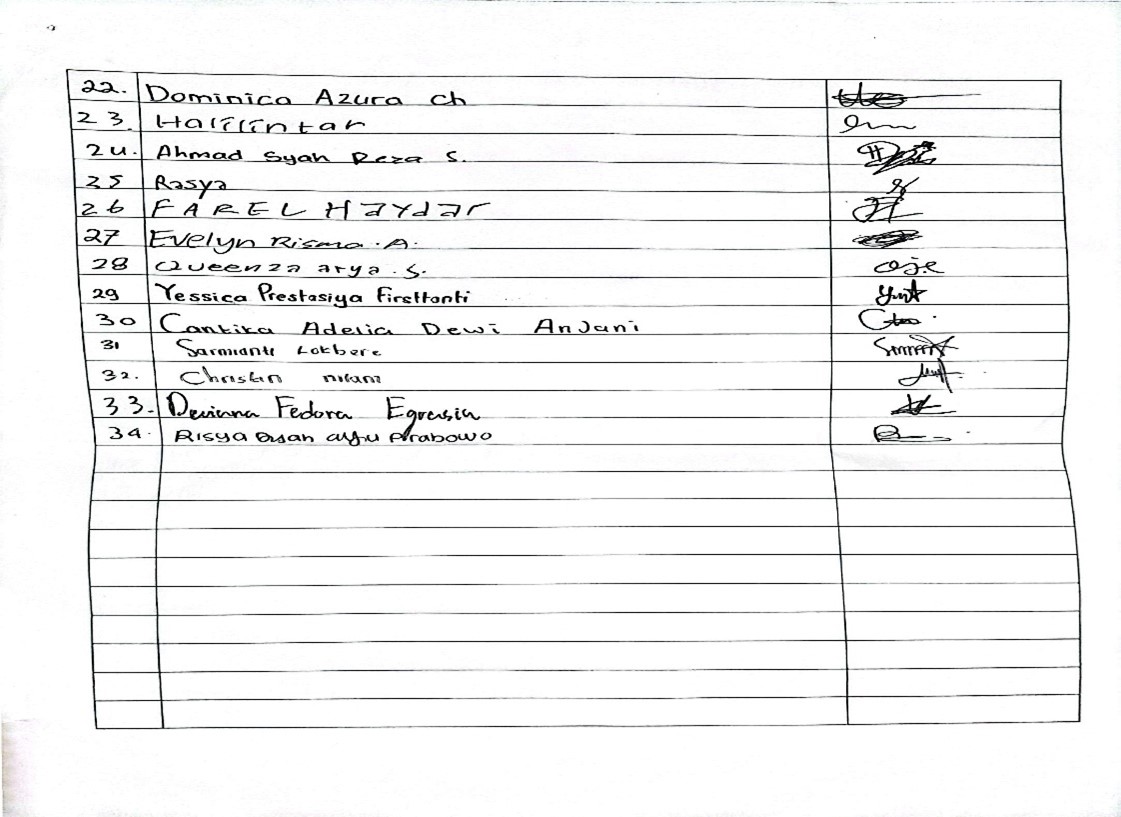 22. Dominica Azura Ch
23. Halilintar
24. Ahmad Syah Reza S.
25 Rasya
26 FAREL Haydar
27 Evelyn Risma. A.
28 Queenza arya. S.
29 Yessica Prestasiya Firsttanti
30 Cantika Adelia Dewi Anjani
31 Sarmianti Lokbere
32. Christin
33. Devianna Fedora
34. Risya ayu Prabowo